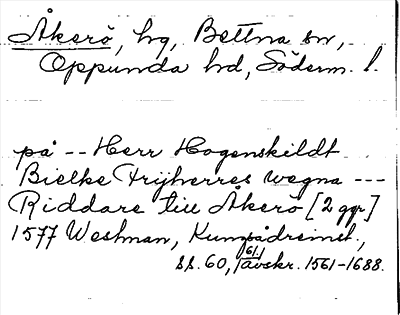 Åkerö, hg, Bettna sn,
Oppunda hd, Söderm. l.
på -- Herr Hogenskildt
Bielke Frijherres wegna ---
Riddare till Åkerö [2 ggr]
1577 Westman, Kungsådreinst.,
s.s. 60, (61) avskr. 1561-1688.